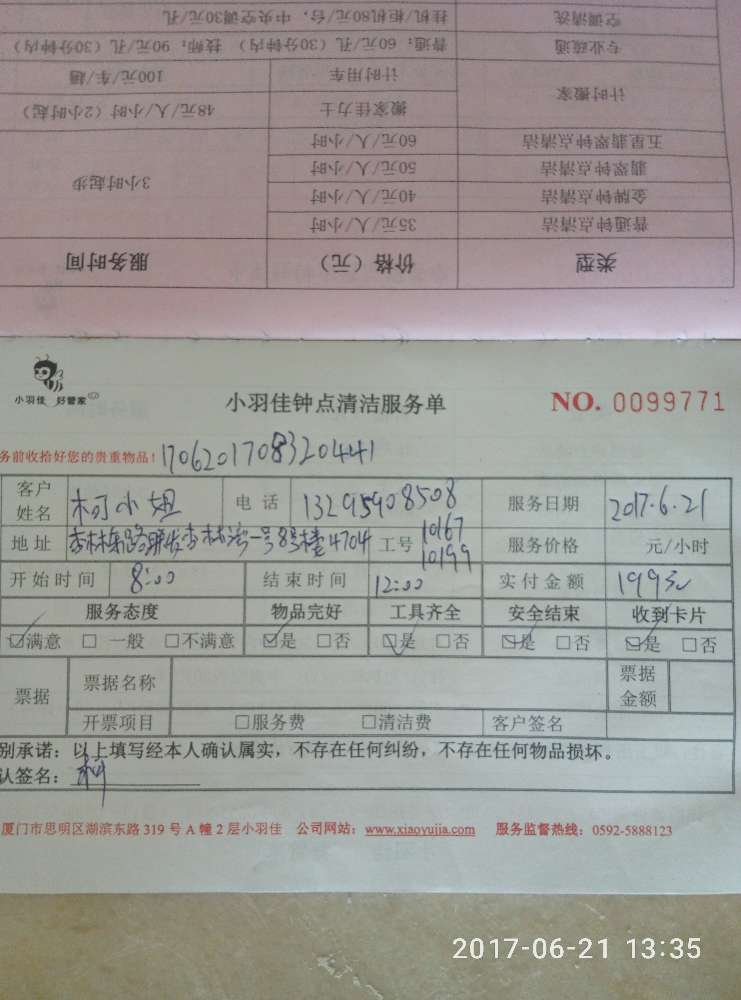 挂机/柜机80元/台，中央空调30元/孔
空调清洗
普通：60元/孔（30分钟内） 技师：90元/孔（30分钟内）
专业疏通
100元/车/趟
计时用车
计时搬家
48元/人/小时（2小时起）
搬家佳力士
60元/人/小时
五星翡翠钟点清洁
3小时起步
50元/人/小时
翡翠钟点清洁
40元/人/小时
金牌钟点清洁
35元/人/小时
普通钟点清洁
服务时间
价格（元）
类型
小羽佳 好管家
小羽佳钟点清洁服务单
NO. 0099771
务前收拾好您的贵重物品！170620170832044​1
客户姓名 柯小姐 电话 13295908508 服务日期 2017.6.21
地址 杏林东路联发杏林湾一号8号楼4704 工号 10167 10199 服务价格 元/小时
开始时间 8:00 结束时间 12:00 实付金额 199元
服务态度 物品完好 工具齐全 安全结束 收到卡片
☑满意 □一般 □不满意 ☑是 □否 ☑是 □否 ☑是 □否 ☑是 □否
票据 票据名称 票据金额
开票项目 □服务费 □清洁费 客户签名
别承诺：以上填写经本人确认属实，不存在任何纠纷，不存在任何物品损坏。
认签名：柯
厦门市思明区湖滨东路 319 号 A 幢 2 层小羽佳 公司网站：www.xiaoyujia.com 服务监督热线：0592-5888123
2017-06-21 13:35